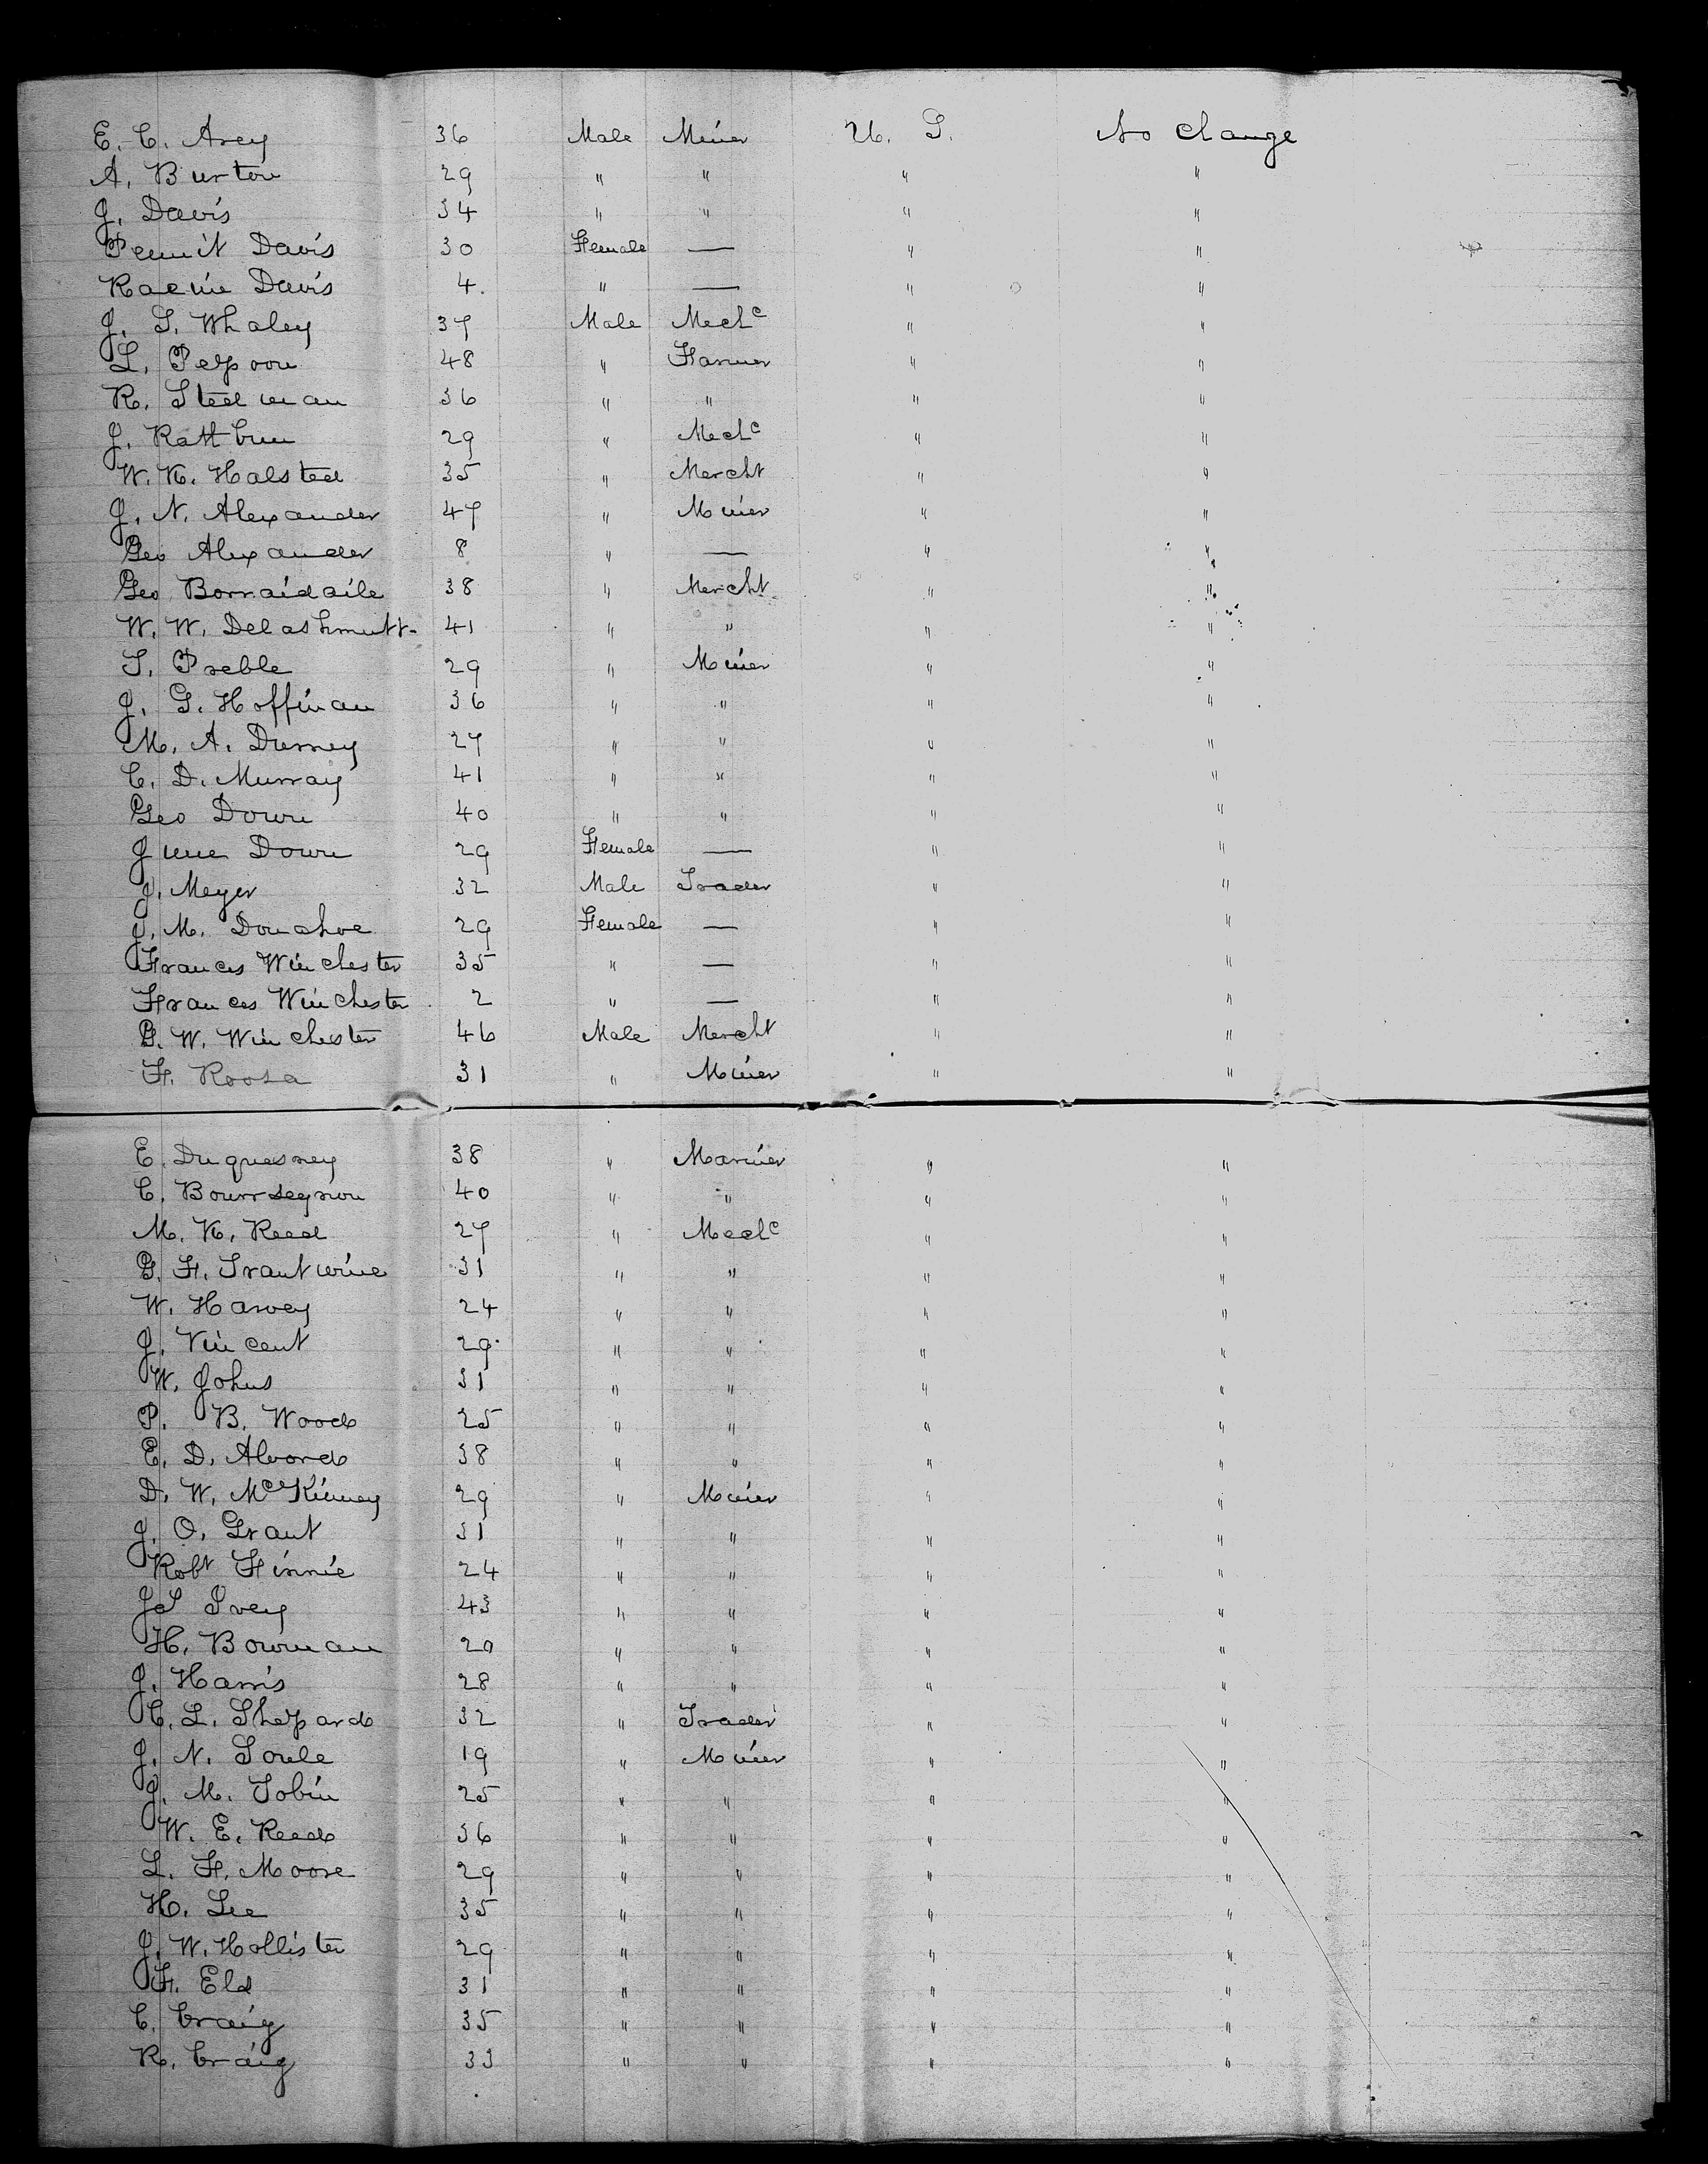 E. C. Avey 36 Male Miner U. S. No Change
A. Burton 29 " " " "
J. Davis 34 " " " "
Davis 30 Female — " "
Davis 4. " — " "
J. S. Whaley 37 Male Mechc " "
L. 48 " Farmer " "
R. Steelman 36 " " " "
J. Rathbun 29 " Mechc " "
W. K. Halsted 35 " Mercht " "
J. N. Alexander 47 " Miner " "
Geo Alexander 8 " — " "
Geo Borraidaile 38 " Mercht " "
W. W. Delashmutt- 41 " " " "
T. Preble 29 " Miner " "
J. G. Hoffman 36 " " " "
M. A. 27 " " " "
C. D. Murray 41 " " " "
Geo Down 40 " " " "
June Down 29 Female — " "
J. Meyer 32 Male Trader " "
J. M. Donahoe 29 Female — " "
Frances Winchester 35 " — " "
Frances Winchester 2 " — " "
G. W. Winchester 46 Male Mercht " "
F. Roosa 31 " Miner " "
E. Duquesney 38 " Mariner " "
C. 40 " " " "
M. K. Reed 27 " Mechc " "
G. F. Trautwine 31 " " " "
W. Harvey 24 " " " "
J. Vincent 29 " " " "
W. Johns 31 " " " "
P. B. Wood 25 " " " "
E. D. Alvord 38 " " " "
D. W. McKinney 29 " Miner " "
J. O. Grant 31 " " " "
Robt Finnie 24 " " " "
Ivey 43 " " " "
H. Bowman 20 " " " "
J. Harris 28 " " " "
C. L. Shepard 32 " Trader " "
J. N. Soule 19 " Miner " "
J. M. Tobin 25 " " " "
W. E. Reed 36 " " " "
L. F. Moore 29 " " " "
H. Lee 35 " " " "
J. W. Hollister 29 " " " "
F. Eld 31 " " " "
C. Craig 35 " " " "
R. Craig 33 " " " "